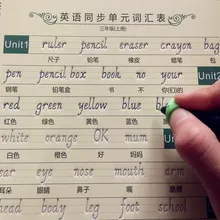 英语同步单元词汇表
三年级(上册)
Unit1 ruler pencil eraser crayon bag
尺子 铅笔 橡皮 蜡笔 包
pen pencil box book no your Unit2
钢笔 铅笔盒 书 不 你(们)的
red green yellow blue
红色 绿色 黄色 蓝色
white orange OK mum
白色 橙色 好 妈妈
ear
耳朵 眼睛 鼻子 嘴
head body leg foot school